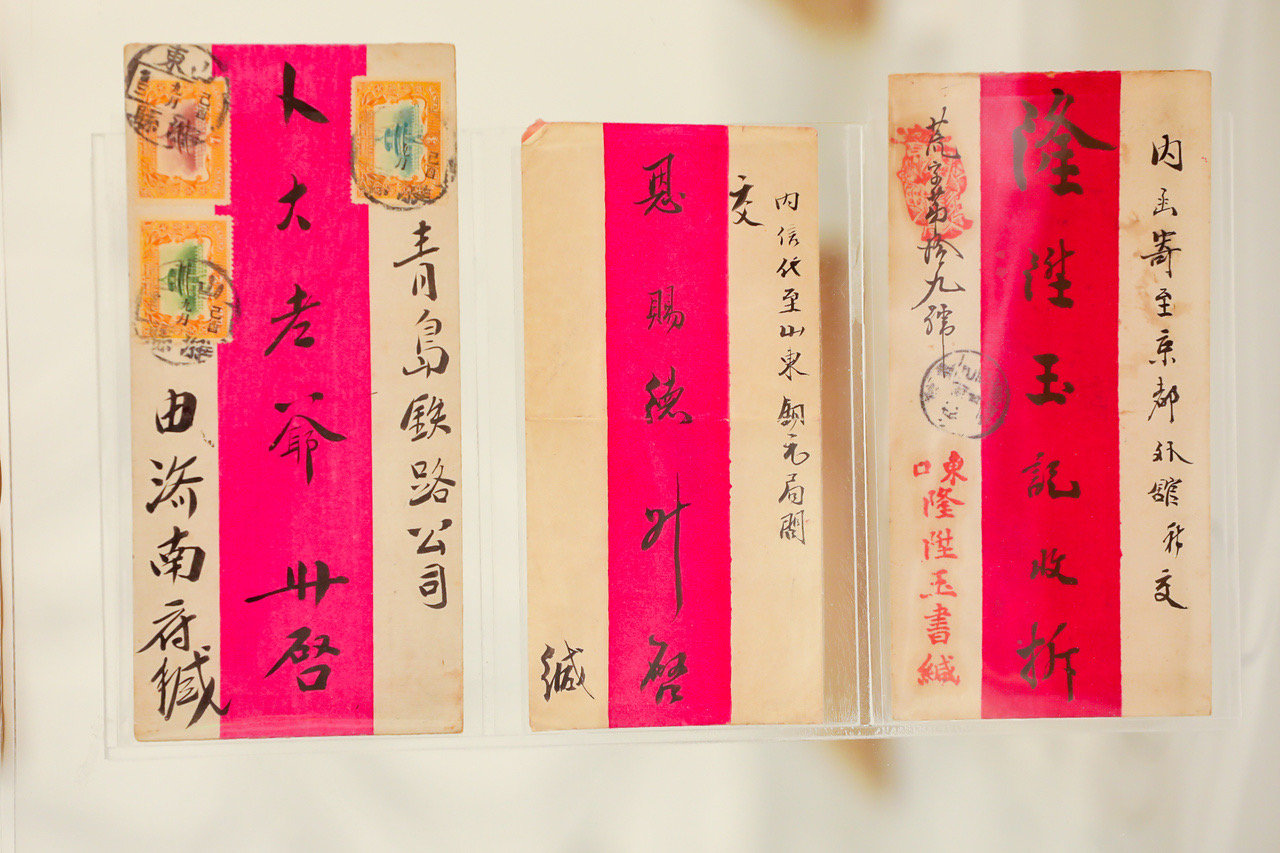 青島鉄路公司
卜大老爺升啓
由濟南府緘
己酉
九月
己酉
九月
内信代至山東銅元局
交
恩賜德升啓
緘
内函寄至京都外舘 交
隆陞玉記收拆
荒字第拾九號
口東隆陞玉書緘